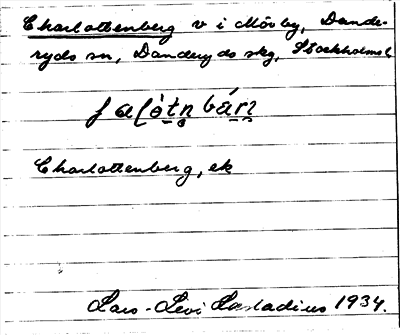 Charlottenberg v i Mörby, Dande-
ryds sn, Danderyds skg, Stockholms l.
Charlottenberg, ek
Lars-Levi Læstadius 1934.